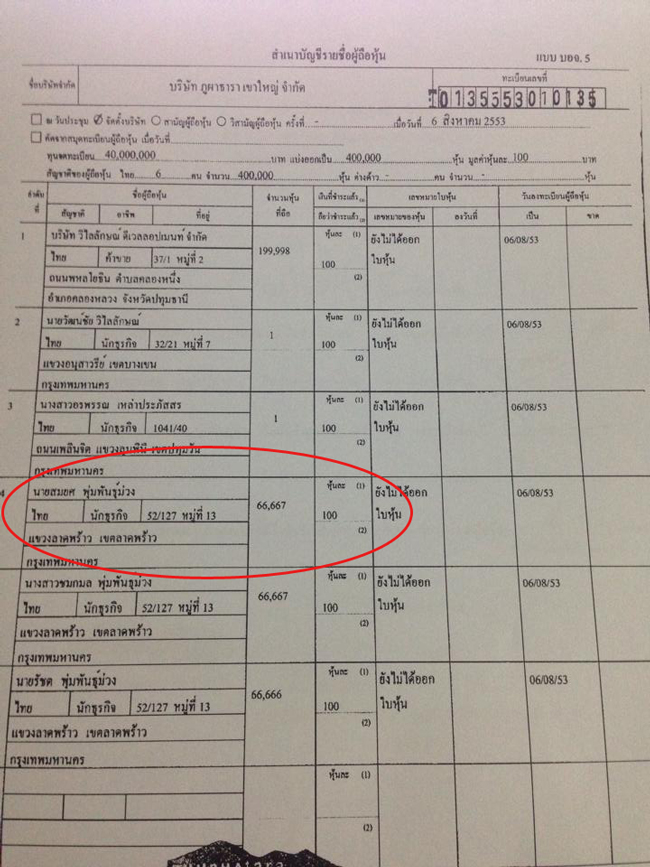 สำเนาบัญชีรายชื่อผู้ถือหุ้น
แบบ บอจ. 5
ชื่อบริษัทจำกัด บริษัท ภูผาธารา เขาใหญ่ จำกัด
ทะเบียนเลขที่
0135553010135
ณ วันประชุม จัดตั้งบริษัท สามัญผู้ถือหุ้น วิสามัญผู้ถือหุ้น ครั้งที่ - เมื่อวันที่ 6 สิงหาคม 2553
คัดจากสมุดทะเบียนผู้ถือหุ้น เมื่อวันที่
ทุนจดทะเบียน 40,000,000 บาท แบ่งออกเป็น 400,000 หุ้น มูลค่าหุ้นละ 100 บาท
สัญชาติของผู้ถือหุ้น ไทย 6 คน จำนวน 400,000 หุ้น ต่างด้าว - คน จำนวน - หุ้น
ลำดับที่ ชื่อผู้ถือหุ้น จำนวนหุ้นที่ถือ เงินที่ชำระแล้ว เลขหมายใบหุ้น วันลงทะเบียนผู้ถือหุ้น
สัญชาติ อาชีพ ที่อยู่ ถือว่าชำระแล้ว เลขหมายของหุ้น ลงวันที่ เป็น ขาด
1 บริษัท วิไลลักษณ์ ดีเวลลอปเมนท์ จำกัด 199,998 หุ้นละ (1) ยังไม่ได้ออก 06/08/53
ไทย ค้าขาย 37/1 หมู่ที่ 2 100 ใบหุ้น
ถนนพหลโยธิน ตำบลคลองหนึ่ง (2)
อำเภอคลองหลวง จังหวัดปทุมธานี
2 นายวัฒน์ชัย วิไลลักษณ์ 1 หุ้นละ (1) ยังไม่ได้ออก 06/08/53
ไทย นักธุรกิจ 32/21 หมู่ที่ 7 100 ใบหุ้น
แขวงอนุสาวรีย์ เขตบางเขน (2)
กรุงเทพมหานคร
3 นางสาวอรพรรณ เหล่าประภัสสร 1 หุ้นละ (1) ยังไม่ได้ออก 06/08/53
ไทย นักธุรกิจ 1041/40 100 ใบหุ้น
ถนนเพลินจิต แขวงลุมพินี เขตปทุมวัน (2)
กรุงเทพมหานคร
4 นายสมยศ พุ่มพันธุ์ม่วง 66,667 หุ้นละ (1) ยังไม่ได้ออก 06/08/53
ไทย นักธุรกิจ 52/127 หมู่ที่ 13 100 ใบหุ้น
แขวงลาดพร้าว เขตลาดพร้าว (2)
กรุงเทพมหานคร
นางสาวชมกมล พุ่มพันธุ์ม่วง 66,667 หุ้นละ (1) ยังไม่ได้ออก 06/08/53
ไทย นักธุรกิจ 52/127 หมู่ที่ 13 100 ใบหุ้น
แขวงลาดพร้าว เขตลาดพร้าว (2)
กรุงเทพมหานคร
นายรัชต พุ่มพันธุ์ม่วง 66,666 หุ้นละ (1) ยังไม่ได้ออก 06/08/53
ไทย นักธุรกิจ 52/127 หมู่ที่ 13 100 ใบหุ้น
แขวงลาดพร้าว เขตลาดพร้าว (2)
กรุงเทพมหานคร
หุ้นละ (1)
(2)